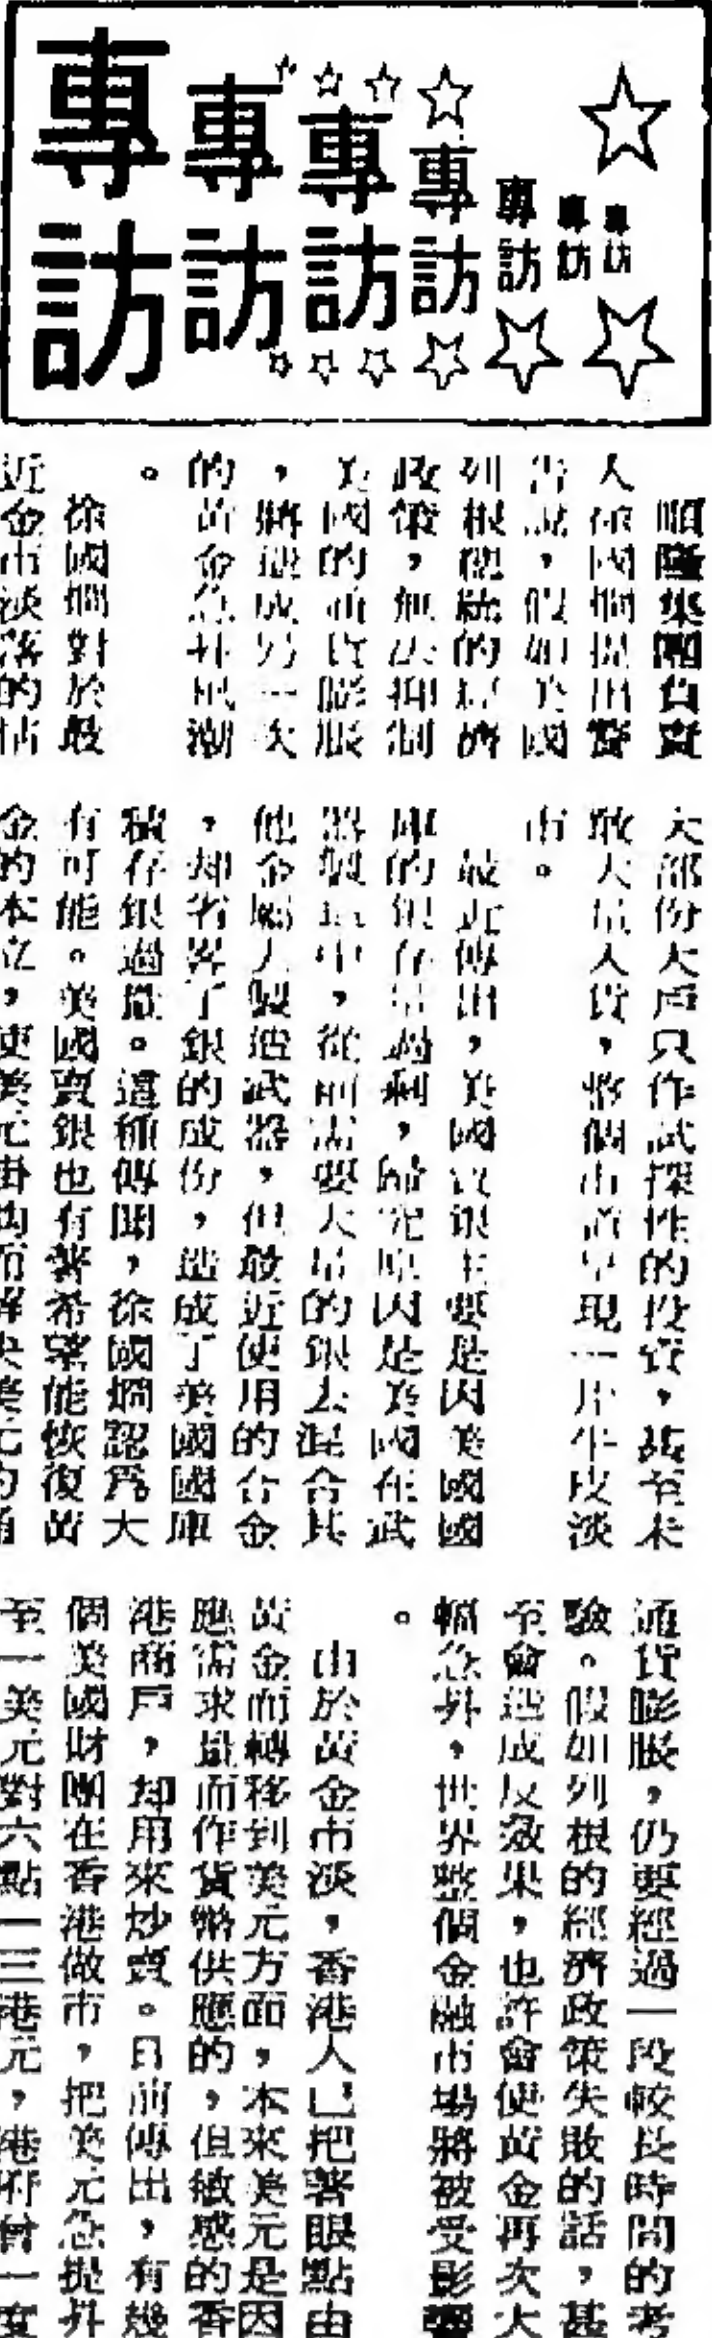 專訪
專訪
專訪
專訪
專訪
專訪
專訪
順隆集團負責
人徐國炯提出警
告說，假如美國
列根總統的經濟
政策，無法抑制
美國的通貨膨脹
，將造成另一次
的黃金急升風潮
。
徐國炯對於最
近金市淡落的
大部份大戶只作試探性的投資，甚至未
敢大量入貨，整個市道呈現一片牛皮淡
市。
最近傳出，美國賣銀主要是因美國國
庫的銀存量過剩，歸究原因是美國在武
器製造中，從前需要大量的銀去混合其
他金屬去製造武器，但最近使用的合金
，却省畧了銀的成份，造成了美國國庫
積存銀過盤。這種傳聞，徐國炯認爲大
有可能。美國賣銀也有著希望能恢復黃
金的本位，使美元掛鈎而解決美元的
通貨膨脹，仍要經過一段較長時間的考
驗。假如列根的經濟政策失敗的話，甚
至會造成反效果，也許會使黃金再次大
幅急升，世界整個金融市場將被受影響
。
由於黃金市淡，香港人已把著眼點由
黃金而轉移到美元方面，本來美元是因
應需求量而作貨幣供應的，但敏感的香
港商戶，却用來炒賣。日前傳出，有幾
個美國財團在香港做市，把美元急提升
至一美元對六點一三港元，港府曾一度